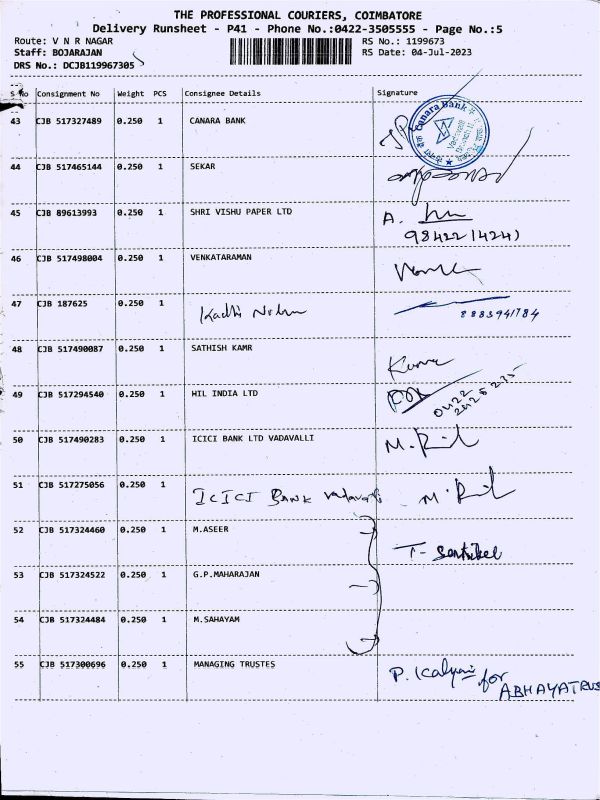 THE PROFESSIONAL COURIERS, COIMBATORE
Delivery Runsheet - P41 - Phone No.:0422-3505555 - Page No.:5
Route: V N R NAGAR RS No.: 1199673
Staff: BOJARAJAN RS Date: 04-Jul-2023
DRS No.: DCJB119967305
S No Consignment No Weight PCS Consignee Details Signature
43 CJB 517327489 0.250 1 CANARA BANK
Canara Bank
44 CJB 517465144 0.250 1 SEKAR
45 CJB 89613993 0.250 1 SHRI VISHU PAPER LTD A.
9842214241
46 CJB 517498004 0.250 1 VENKATARAMAN
47 CJB 187625 0.250 1 Kadhi
8883941784
48 CJB 517490087 0.250 1 SATHISH KAMR
Kuma
49 CJB 517294540 0.250 1 HIL INDIA LTD
0422
50 CJB 517490283 0.250 1 ICICI BANK LTD VADAVALLI M.
51 CJB 517275056 0.250 1 ICICI BANK Vadavalli M.
52 CJB 517324460 0.250 1 M.ASEER
T-
53 CJB 517324522 0.250 1 G.P.MAHARAJAN
54 CJB 517324484 0.250 1 M.SAHAYAM
55 CJB 517300696 0.250 1 MANAGING TRUSTES
P. Kalyani for
ABHAYATRUS